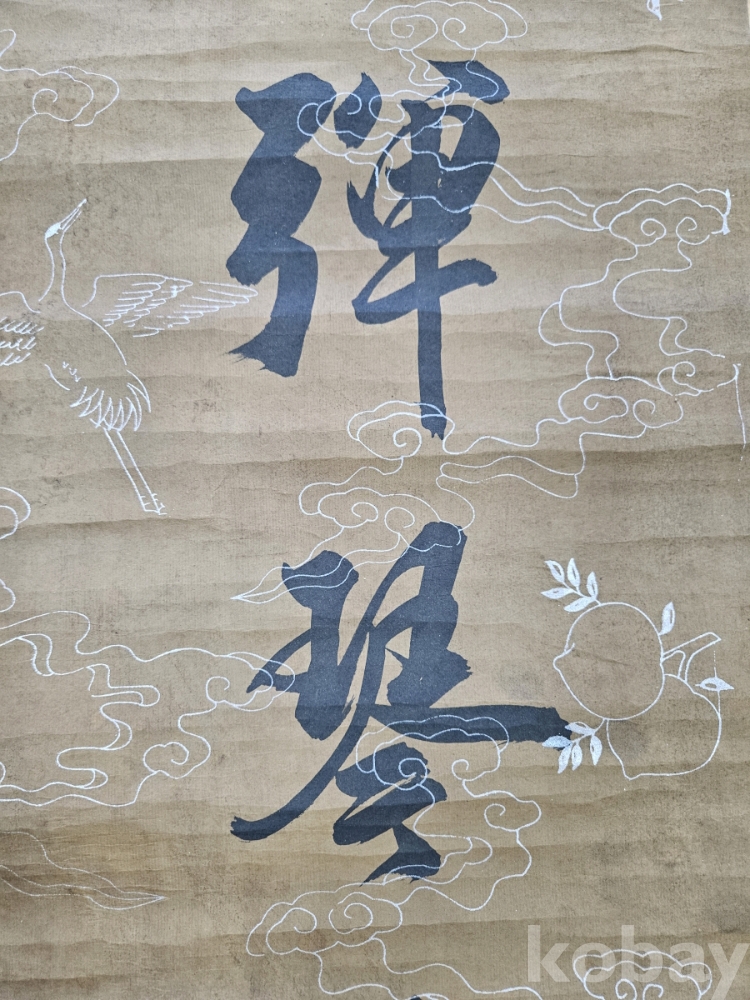 彈
琴
kobay